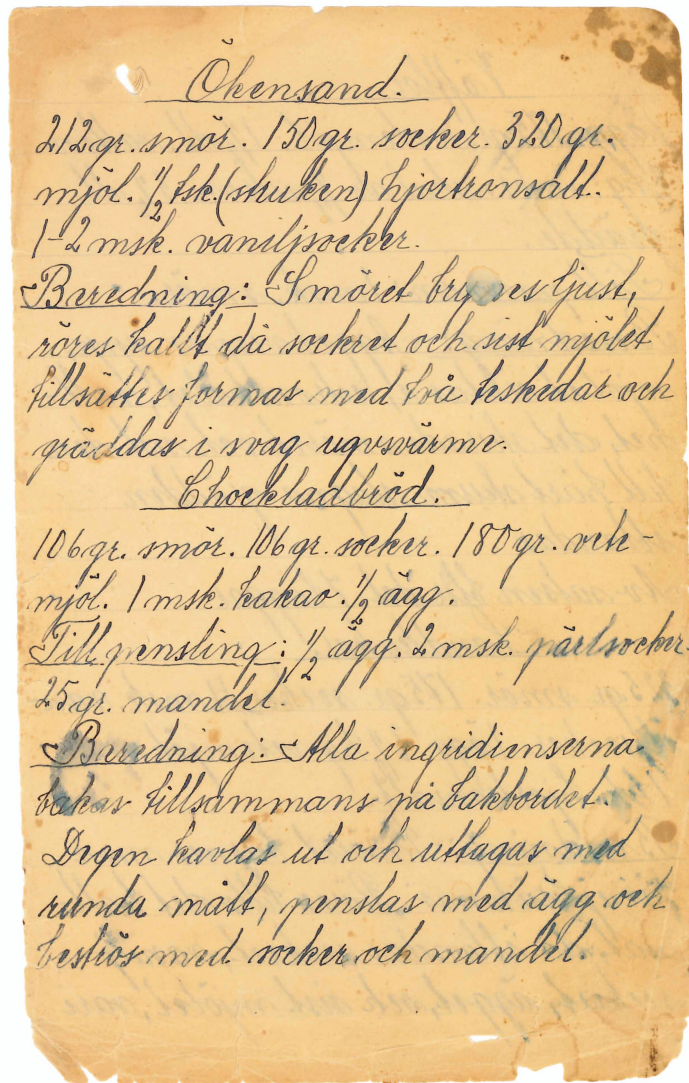 Ökensand.
212 gr. smör. 150 gr. socker. 320 gr.
mjöl. 1/2 tsk. (struken) hjortronsalt.
1-2 msk. vaniljsocker.
Beredning: Smöret brynes ljust,
röres kallt då sockret och sist mjölet
tillsättes formas med två teskedar och
gräddas i svag ugvsvärme.
Chockladbröd.
106 gr. smör. 106 gr. socker. 180 gr. vete-
mjöl. 1 msk. kakao. 1/2 ägg.
Till pensling: 1/2 ägg. 2 msk. pärlsocker.
25 gr. mandel.
Beredning: Alla ingridienserna
bakas tillsammans på bakbordet.
Degen kavlas ut och uttagas med
runda mått, penslas med ägg och
beströs med socker och mandel.